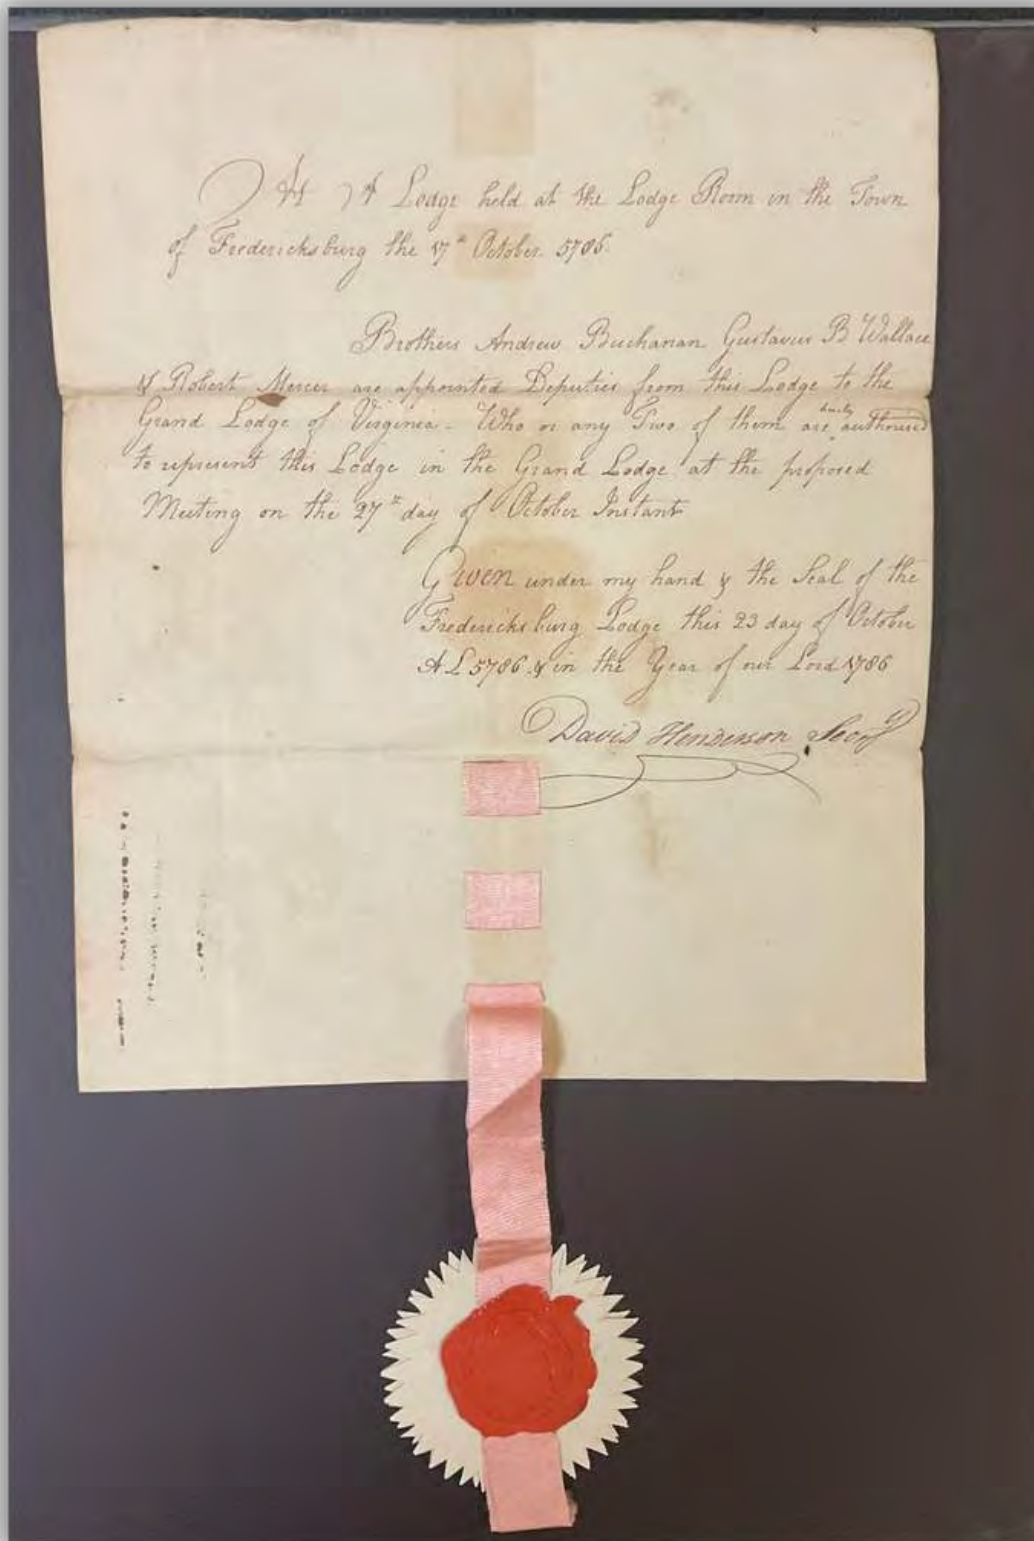 At A Lodge held at the Lodge Room in the Town
of Fredericksburg the 17th October. 5786.
Brothers Andrew Buchanan Gustavus B Wallace
& Robert Mercer are appointed Deputies from this Lodge to the
Grand Lodge of Virginia - Who or any Two of them are duly authorised
to represent this Lodge in the Grand Lodge at the proposed
Meeting on the 27th day of October Instant
Given under my hand & the Seal of the
Fredericksburg Lodge this 23 day of October
AL 5786 & in the Year of our Lord 1786
David Henderson Secry